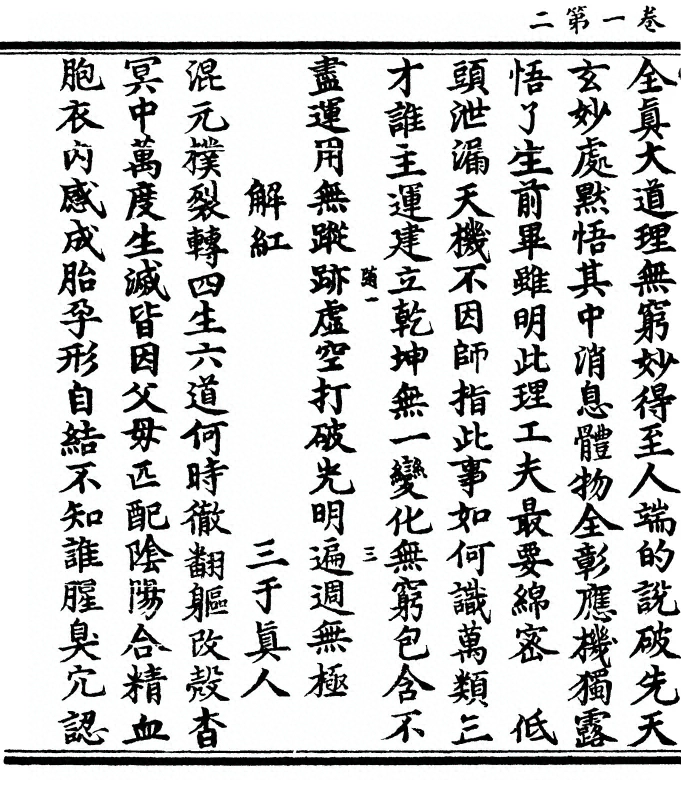 巻一第二
全眞大道理無窮妙得至人端的說破先天
玄妙處黙悟其中消息體物全彰應機獨露
悟了生前畢雖明此理工夫最要綿密　低
頭泄漏天機不因師指此事如何識萬類三
才誰主運建立乾坤無一變化無窮包含不
一　三
盡運用無蹤跡虛空打破光明遍週無極
解紅　三于眞人
混元樸裂轉四生六道何時徹翻軀改殻杳
冥中萬度生滅皆因父母匹配陰陽合精血
胞衣內感成胎孕形自結不知誰腥臭穴認